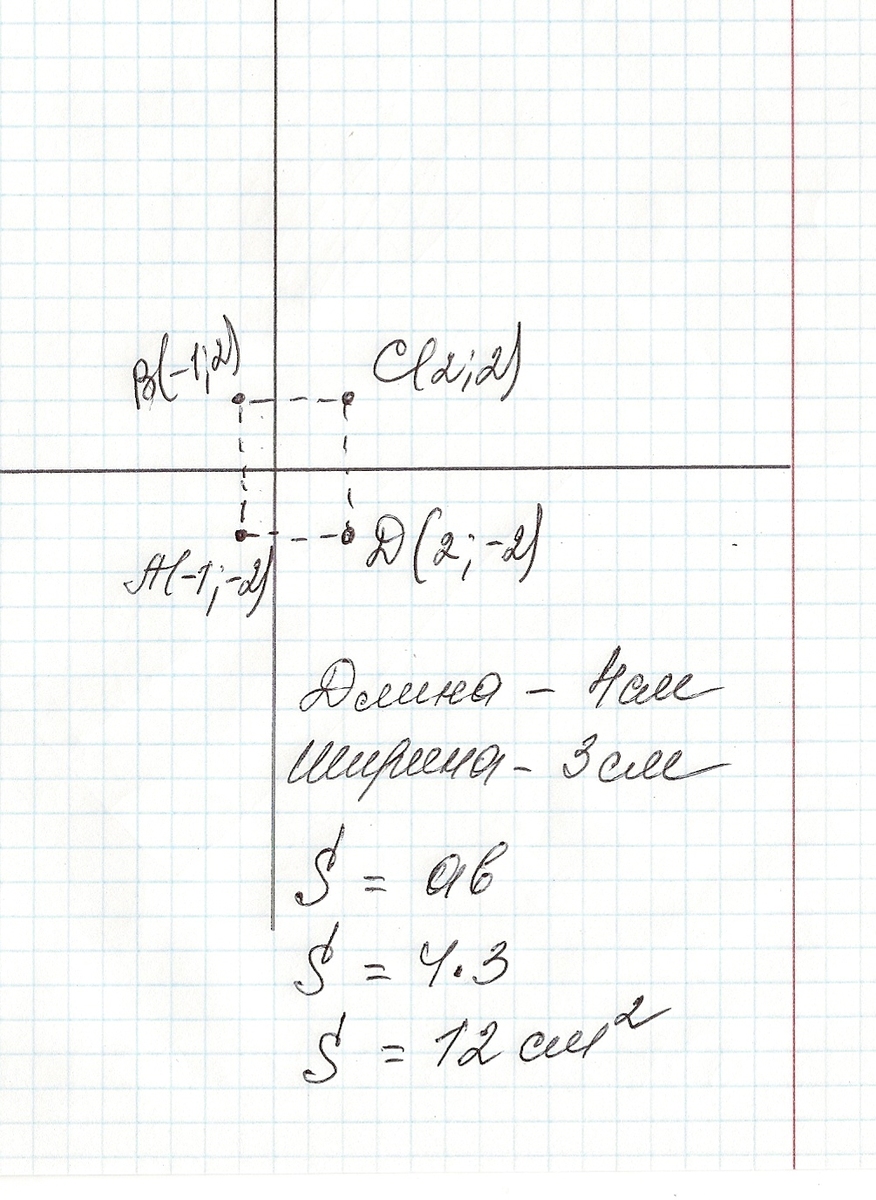 B(-1;2) C(2;2)
A(-1;-2) D(2;-2)
Длина - 4см
Ширина - 3см
S = ab
S = 4·3
S = 12 см²